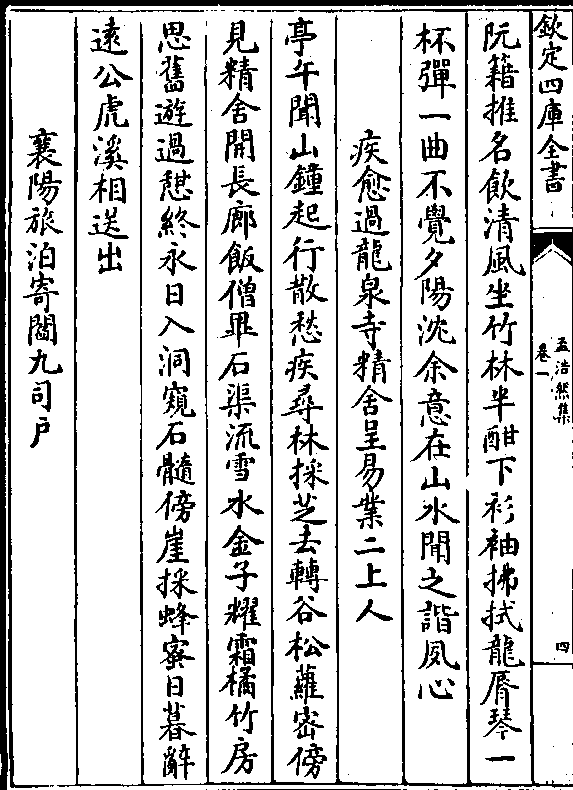 欽定四庫全書
孟浩然集
卷一
四
阮籍推名飲清風坐竹林半酣下衫袖拂拭龍脣琴一
杯彈一曲不覺夕陽沈余意在山水聞之諧夙心
疾愈過龍泉寺精舍呈易業二上人
亭午聞山鐘起行散愁疾尋林採芝去轉谷松蘿密傍
見精舍開長廊飯僧畢石渠流雪水金子耀霜橘竹房
思舊遊過憇終永日入洞窺石髓傍崖採蜂蜜日暮辭
遠公虎溪相送出
襄陽旅泊寄閻九司户